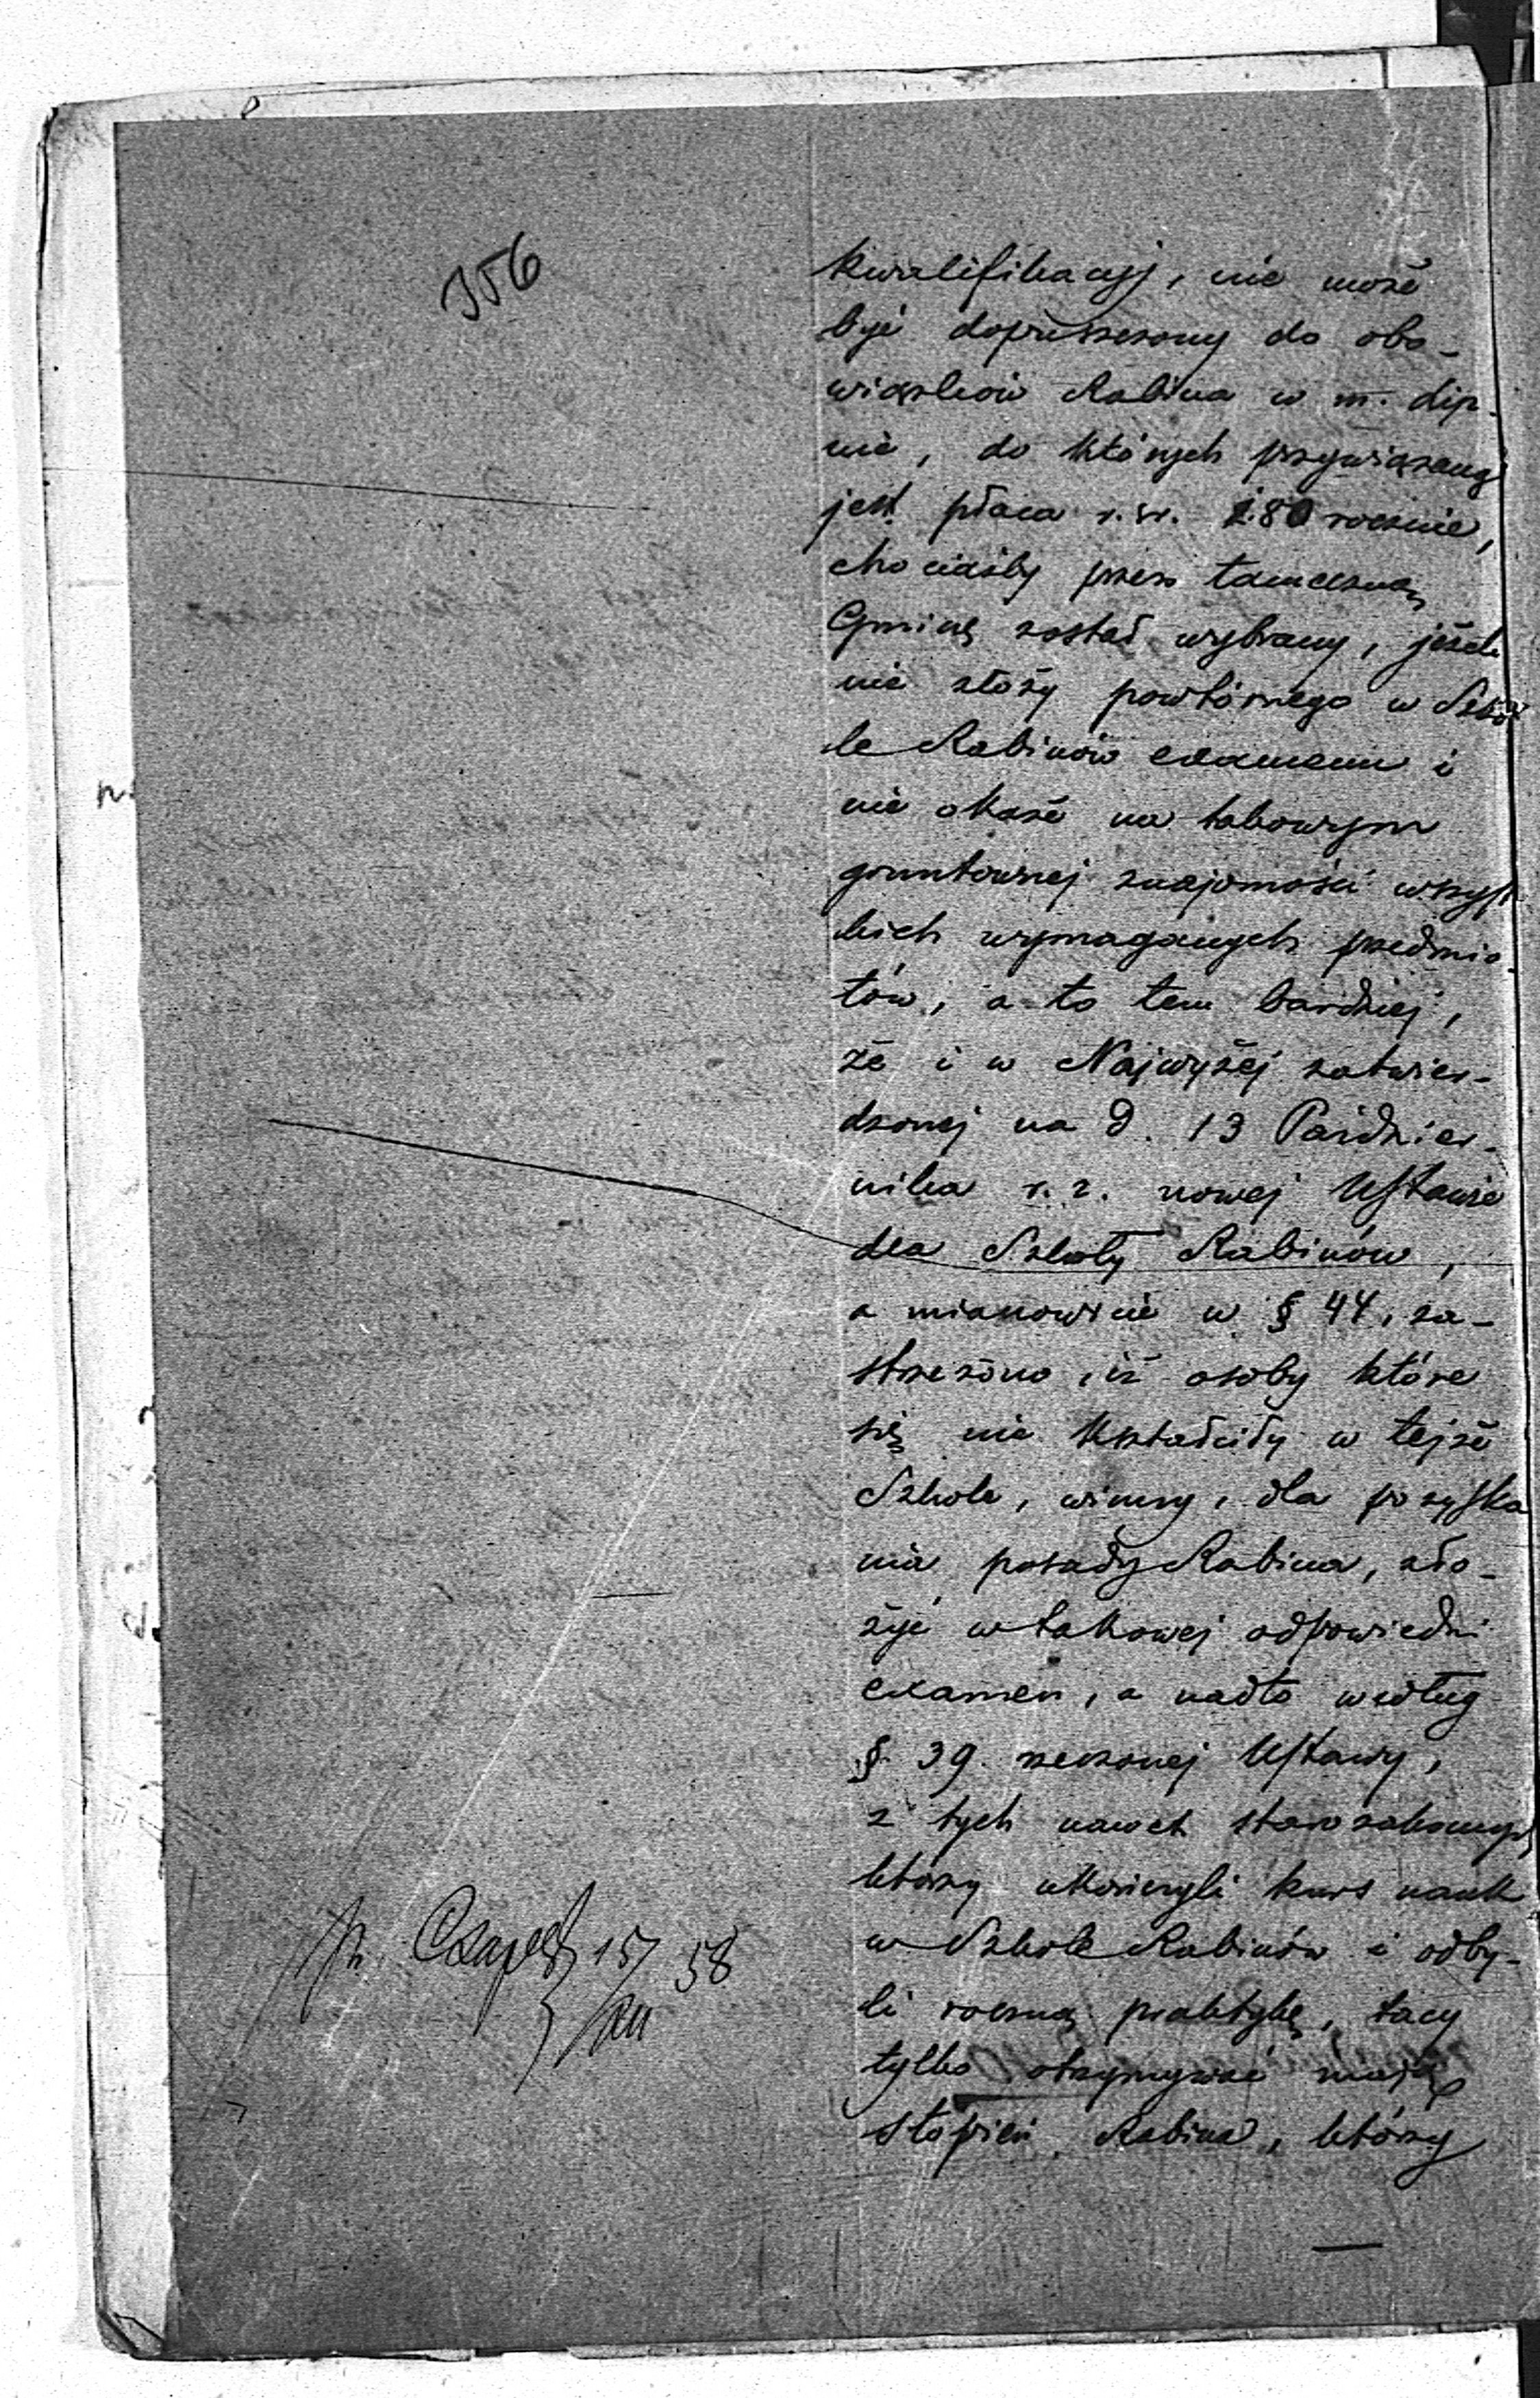 356
kwalifikacyj, nie może
być dopuszczony do obo-
wiązków Rabina w m. Lip-
nie, do których przywiązaną
jest płaca r. sr. 180 rocznie,
chociażby przez tameczną
Gminę został wybrany, jeżeli
nie złoży powtórnego w Szko-
le Rabinów examenu i
nie okaże na takowym
gruntownej znajomości wszyst-
kich wymaganych przedmio-
tów, a to tem bardziej,
że i w Najwyżej zatwier-
dzonej na d. 13 Paździer-
nika r. z. nowej Ustawie
dla Szkoły Rabinów,
a mianowicie w § 44, za-
strzeżono, iż osoby które
się nie kształciły w tejże
Szkole, winny, dla pozyska
nia posady Rabina, zło-
żyć w takowej odpowiedni
examen, a nadto według
§. 39. rzeczonej Ustawy,
z tych nawet starozakonnych
którzy ukończyli kurs nauk
w Szkole Rabinów i odby-
li roczną praktykę, tacy
tylko otrzymywać mają
stopień Rabina, którzy
15/XII 58